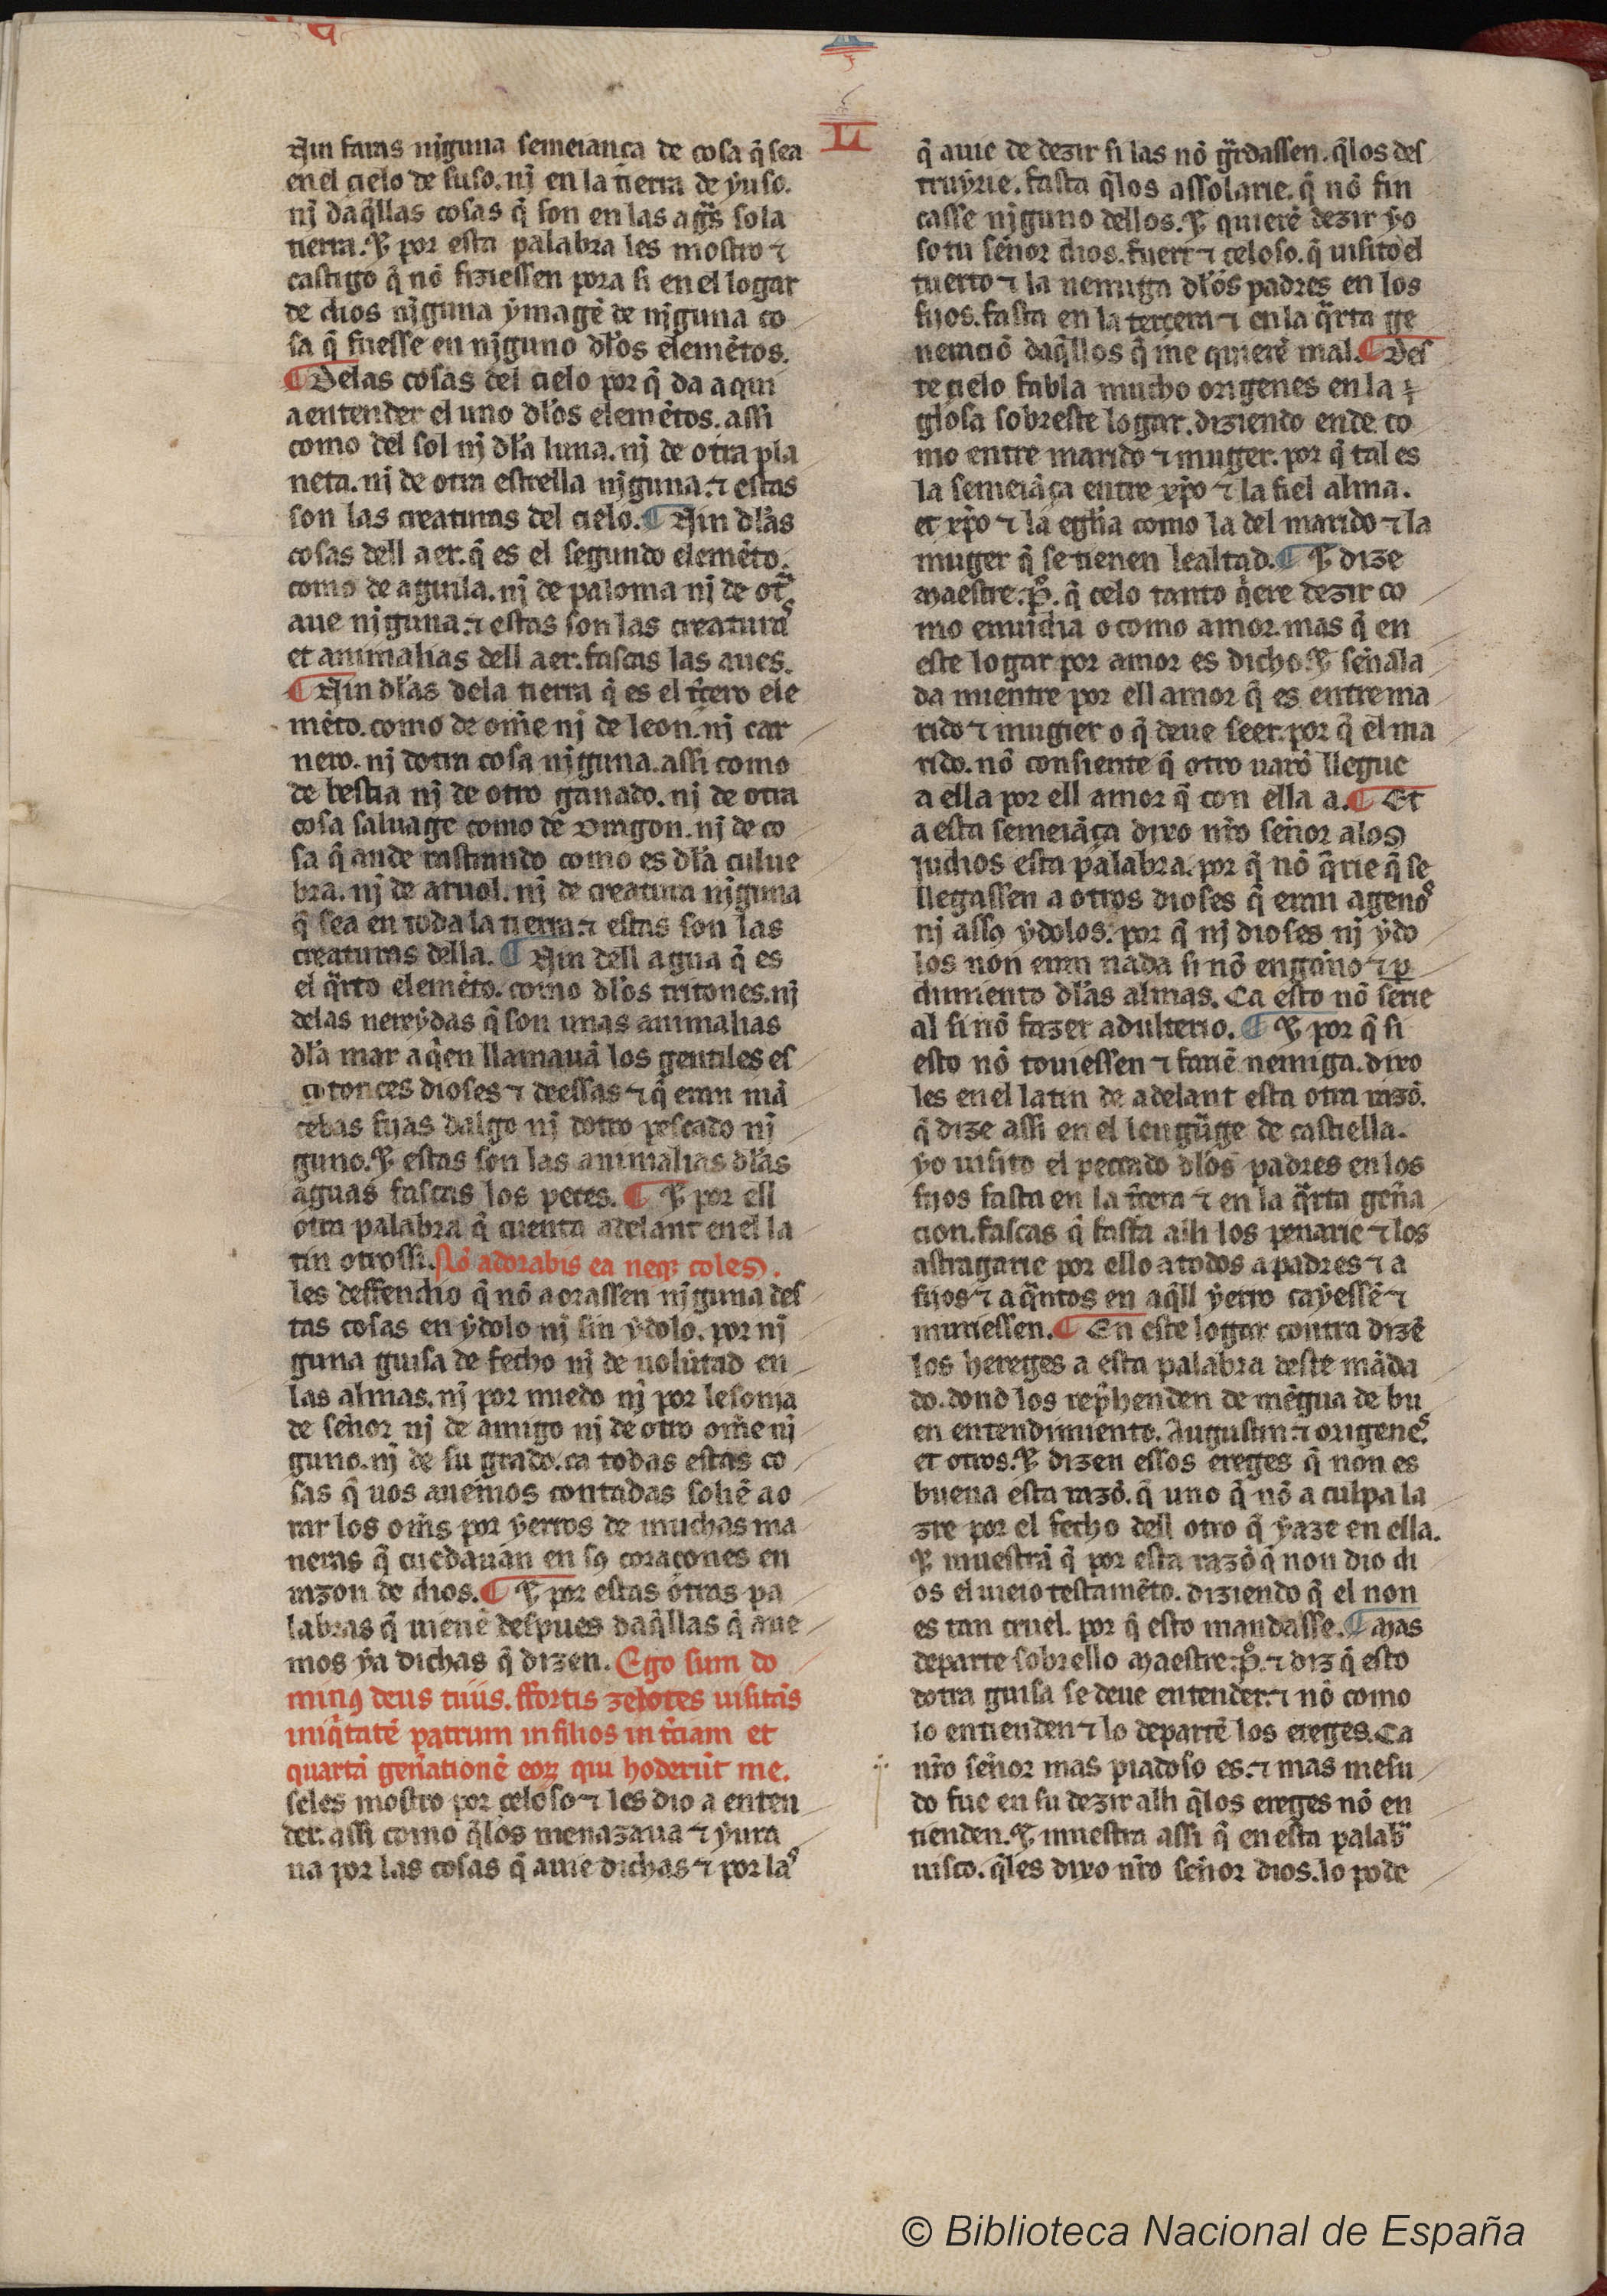 L
Nin faras njguna semeiança de cosa q̃ sea
en el cielo de suso. nj en la tierra de ẏuso.
nj daq̃llas cosas q̃ son en las agͣs so la
tierra. ⁊ por esta palabra les mostro ⁊
castigo q̃ nõ fiziessen pora si en el logar
de dios njguna ẏmagẽ de njguna co
sa q̃ fuesse en njguno dłos elemẽtos.
¶ Delas cosas del cielo por q̃ da aqui
a entender el uno dłos elemẽtos. assi
como del sol nj dła luna. nj de otra pla
neta. nj de otra estrella njguna. ⁊ estas
son las creaturas del cielo. ¶ Nin dłas
cosas dell aer. q̃ es el segundo elemẽto.
como de aguila. nj de paloma nj de otͣ
aue njguna. ⁊ estas son las creaturas
et animalias dell aer. fascas las aues.
¶ Nin dłas dela tierra q̃ es el t̃cero ele
mẽto. como de om̃e nj de leon. nj car
nero. nj dotra cosa njguna. assi como
de bestia nj de otro ganado. nj de otra
cosa saluage como de dragon. nj de co
sa q̃ ande rastrando como es dła culue
bra. nj de aruol. nj de creatura njguna
q̃ sea en toda la tierra. ⁊ estas son las
creaturas della. ¶ Nin dell agua q̃ es
el qͣrto elemẽto. como dłos tritones. nj
delas nereẏdas q̃ son unas animalias
dła mar a qͥen llamauã los gentiles es
tonces dioses ⁊ deessas ⁊ q̃ eran mã
cebas fijas dalgo nj dotro pescado nj
guno. ⁊ estas son las animalias dłas
aguas fascas los peces. ¶ ⁊ por ell
otra palabra q̃ cuenta adelant en el la
tin otrossi. Nõ adorabis ea neqȝ coles.
les deffendio q̃ nõ aorassen njguna des
tas cosas en ẏdolo nj sin ẏdolo. por nj
guna guisa de fecho nj de uolũtad en
las almas. nj por miedo nj por lesonja
de señor nj de amigo nj de otro om̃e nj
guno. nj de su grado. ca todas estas co
sas q̃ uos auemos contadas soliẽ ao
rar los om̃s por ẏerros de muchas ma
neras q̃ cuedauan en sꝯ coraçones en
razon de dios. ¶ ⁊ por estas otras pa
labras q̃ uienẽ despues daq̃llas q̃ aue
mos ẏa dichas q̃ dizen. Ego sum do
minꝯ deus tuus. ffortis zelotes uisitãs
iniqͥtatẽ patrum in filios in t̃ciam et
quartã geñationẽ eoꝝ qui hoderũt me.
seles mostro por celoso ⁊ les dio a enten
der. assi como q̃los menazaua ⁊ ẏura
ua por las cosas q̃ auie dichas ⁊ por las
q̃ auie de dezir si las nõ gͣrdassen. q̃los des
truẏrie. fasta q̃los assolarie. q̃ nõ fin
casse njguno dellos. ⁊ quierẽ dezir ẏo
so tu señor dios. fuert ⁊ celoso. q̃ uisito el
tuerto ⁊ la nemiga dłos padres en los
fijos. fasta en la tercera ⁊ en la qͣrta ge
neraciõ daq̃llos q̃ me quierẽ mal. ¶ Des
te cielo fabla mucho origenes en la
glosa sobreste logar. diziendo ende. co
mo entre marido ⁊ muger. por q̃ tal es
la semeiãça entre xp̃o ⁊ la fiel alma.
et xp̃o ⁊ la eglia como la del marido ⁊ la
muger q̃ se tienen lealtad. ¶ ⁊ dize
maestre. p̊. q̃ celo tanto qͥere dezir co
mo emuidia o como amor. mas q̃ en
este logar por amor es dicho. ⁊ señala
da mientre por ell amor q̃ es entre ma
rido ⁊ mugier o q̃ deue seer. por q̃ el ma
rido. nõ consiente q̃ otro uarõ llegue
a ella por ell amor q̃ con ella a. ¶ Et
a esta semeiãça dixo nr̃o señor alos
judios esta palabra. por q̃ nõ qͥrie q̃ se
llegassen a otros dioses q̃ eran agenos
nj assꝯ ẏdolos. por q̃ nj dioses nj ẏdo
los non eran nada si nõ engaño ⁊ ꝑ
dimiento dłas almas. Ca esto nõ serie
al si nõ fazer adulterio. ¶ ⁊ por q̃ si
esto nõ touiessen ⁊ fariẽ nemiga. dixo
les en el latin de adelant esta otra razõ.
q̃ dize assi en el lenguͣge de castiella.
ẏo uisito el peccado dłos padres en los
fijos fasta en la t̃cera ⁊ en la qͣrta geña
cion. fascas q̃ fasta alli los penarie ⁊ los
astragarie por ello a todos a padres ⁊ a
fijos ⁊ a qͣntos en aq̃ll ẏerro caẏessẽ ⁊
muriessen. ¶ En este logar contra dizẽ
los hereges a esta palabra deste mãda
do. dond los rep̃henden de mẽgua de bu
en entendimiento. Augustin. ⁊ origenes.
et otros. ⁊ dizen essos ereges q̃ non es
buena esta razõ. q̃ uno q̃ nõ a culpa la
zre por el fecho dell otro q̃ ẏaze en ella.
⁊ muestrã q̃ por esta razõ q̃ non dio di
os el uieio testamẽto. diziendo q̃ el non
es tan cruel. por q̃ esto mandasse. ¶ Mas
departe sobrello maestre. p̊. ⁊ diz q̃ esto
dotra guisa se deue entender. ⁊ nõ como
lo entienden ⁊ lo departẽ los ereges. Ca
nr̃o señor mas piadoso es. ⁊ mas mesu
do fue en su dezir alli q̃los ereges nõ en
tienden. ⁊ muestra assi q̃ en esta palabͣ
uisco. q̃les dixo nr̃o señor dios. lo pode
© Biblioteca Nacional de España